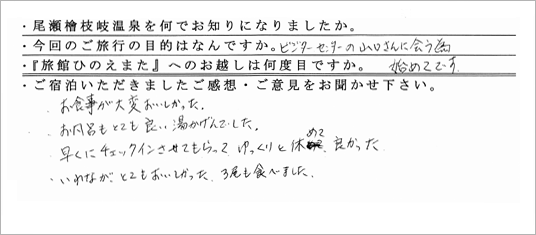 ・尾瀬檜枝岐温泉を何でお知りになりましたか。
・今回のご旅行の目的はなんですか。ビジターセンターの山口さんに会う為
・『旅館ひのえまた』へのお越しは何度目ですか。 始めてです
・ご宿泊いただきましたご感想・ご意見をお聞かせ下さい。
・お食事が大変おいしかった。
・お風呂もとても良い湯かげんでした。
・早くにチェックインさせてもらって ゆっくりと休めて、良かった
・いわながとてもおいしかった。3尾も食べました。